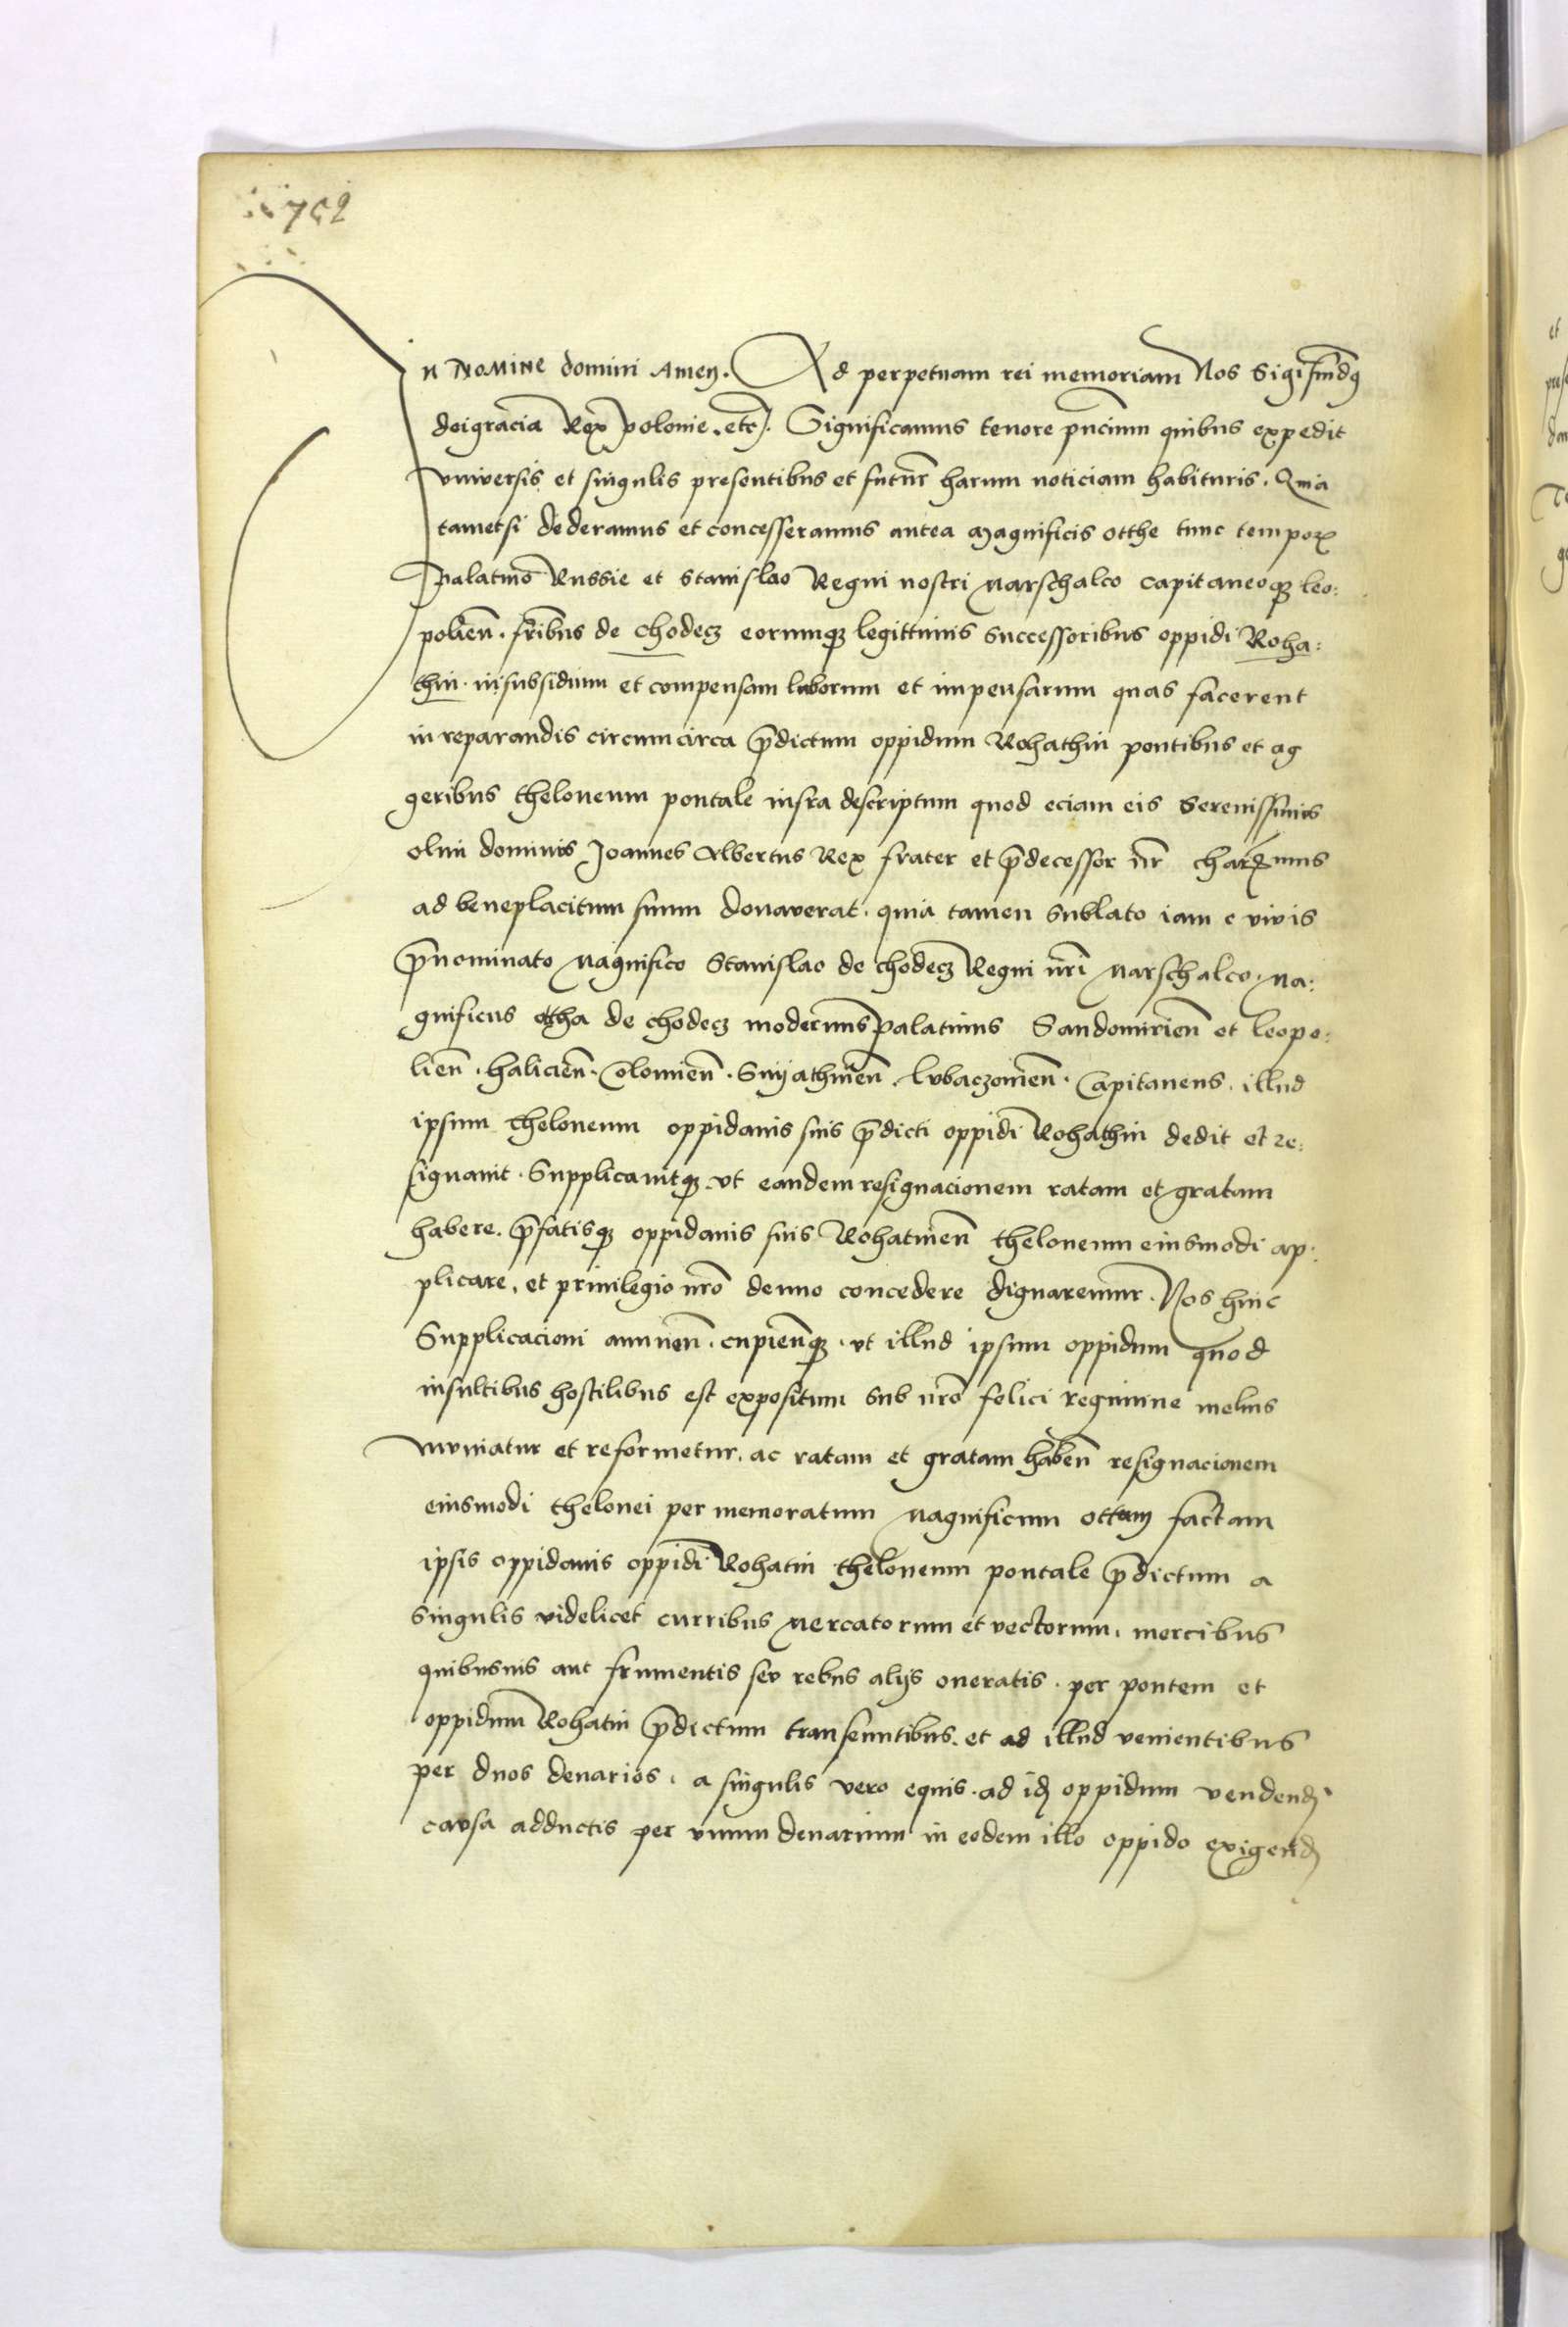 752
In Nomine domini Amen. Ad perpetuam rei memoriam Nos Sigismd9
deigracia Rex polonie. etc. Significamus tenore pncium quibus expedit
vniversis et singulis presentibus et futur harum noticiam habituris. Quia
tametsi dederamus et concesseramus antea Magnificis otthe tunc tempor
palatino Russie et Stanislao Regni nostri Marschalco capitaneoq leo:
polien. fribus de chodecz eorumq legittimis successoribus oppidi Roha:
thin. insubsidium et compensam laborum et impensarum quas facerent
in reparandis circumcirca pdictum oppidum Rohathin pontibus et ag
geribus theloneum pontale infra descriptum quod eciam eis Serenissimus
olim dominus Joannes Albertus Rex frater et pdecessor nr charimus
ad beneplacitum suum donaverat. quia tamen Sublato iam e vivis
pnominato Magnifico Stanislao de chodecz Regni nri Marschalco, Ma:
gnificus ottha de chodecz modernus palatinus Sandomirien et leopo:
lien. halicien. Colomien. Snyathinen. lubaczovien. Capitaneus. illud
ipsum theloneum oppidanis suis pdicti oppidi Rohathin dedit et re:
signavit. Supplicavitq vt eandem resignacionem ratam et gratam
habere. pfatisq oppidanis suis Rohatinen theloneum eiusmodi ap:
plicare, et privilegio nro denuo concedere dignaremur. Nos huic
Supplicacioni annuen. cupienq. vt illud ipsum oppidum quod
insultibus hostilibus est expositum sub nro felici regimine melius
muniatur et reformetur, ac ratam et gratam haben resignacionem
eiusmodi thelonei per memoratum Magnificum ottam factam
ipsis oppidanis oppidi Rohatin theloneum pontale pdictum a
singulis videlicet curribus Mercatorum et vectorum, mercibus
quibusuis aut frumentis seu rebus alijs oneratis. per pontem et
oppidum Rohatin pdictum transeuntibus. et ad illud venientibus
per duos denarios, a singulis vero equis. ad id oppidum vendend
causa adductis per vnum denarium in eodem illo oppido exigend